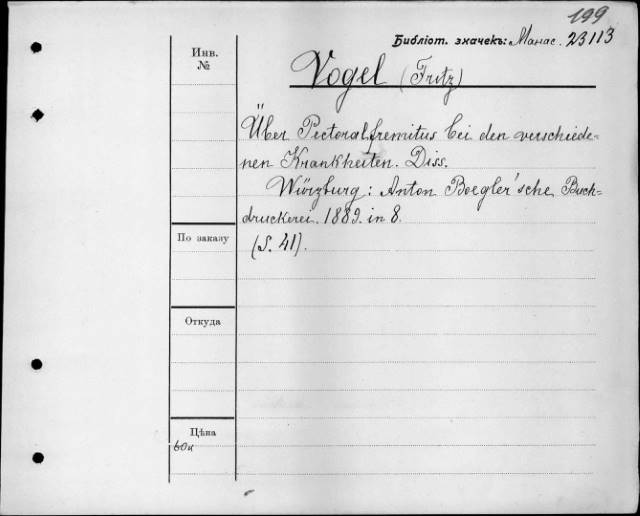 199
Библіот. значекъ: Манас. 23113
Инв.
№
Vogel (Fritz)
Über Pectoralfremitus bei den verschiede-
nen Krankheiten. Diss.
Würzburg: Anton Boegler'sche Buch-
druckerei. 1889. in 8.
(S. 41).
По заказу
Откуда
Цѣна
60к